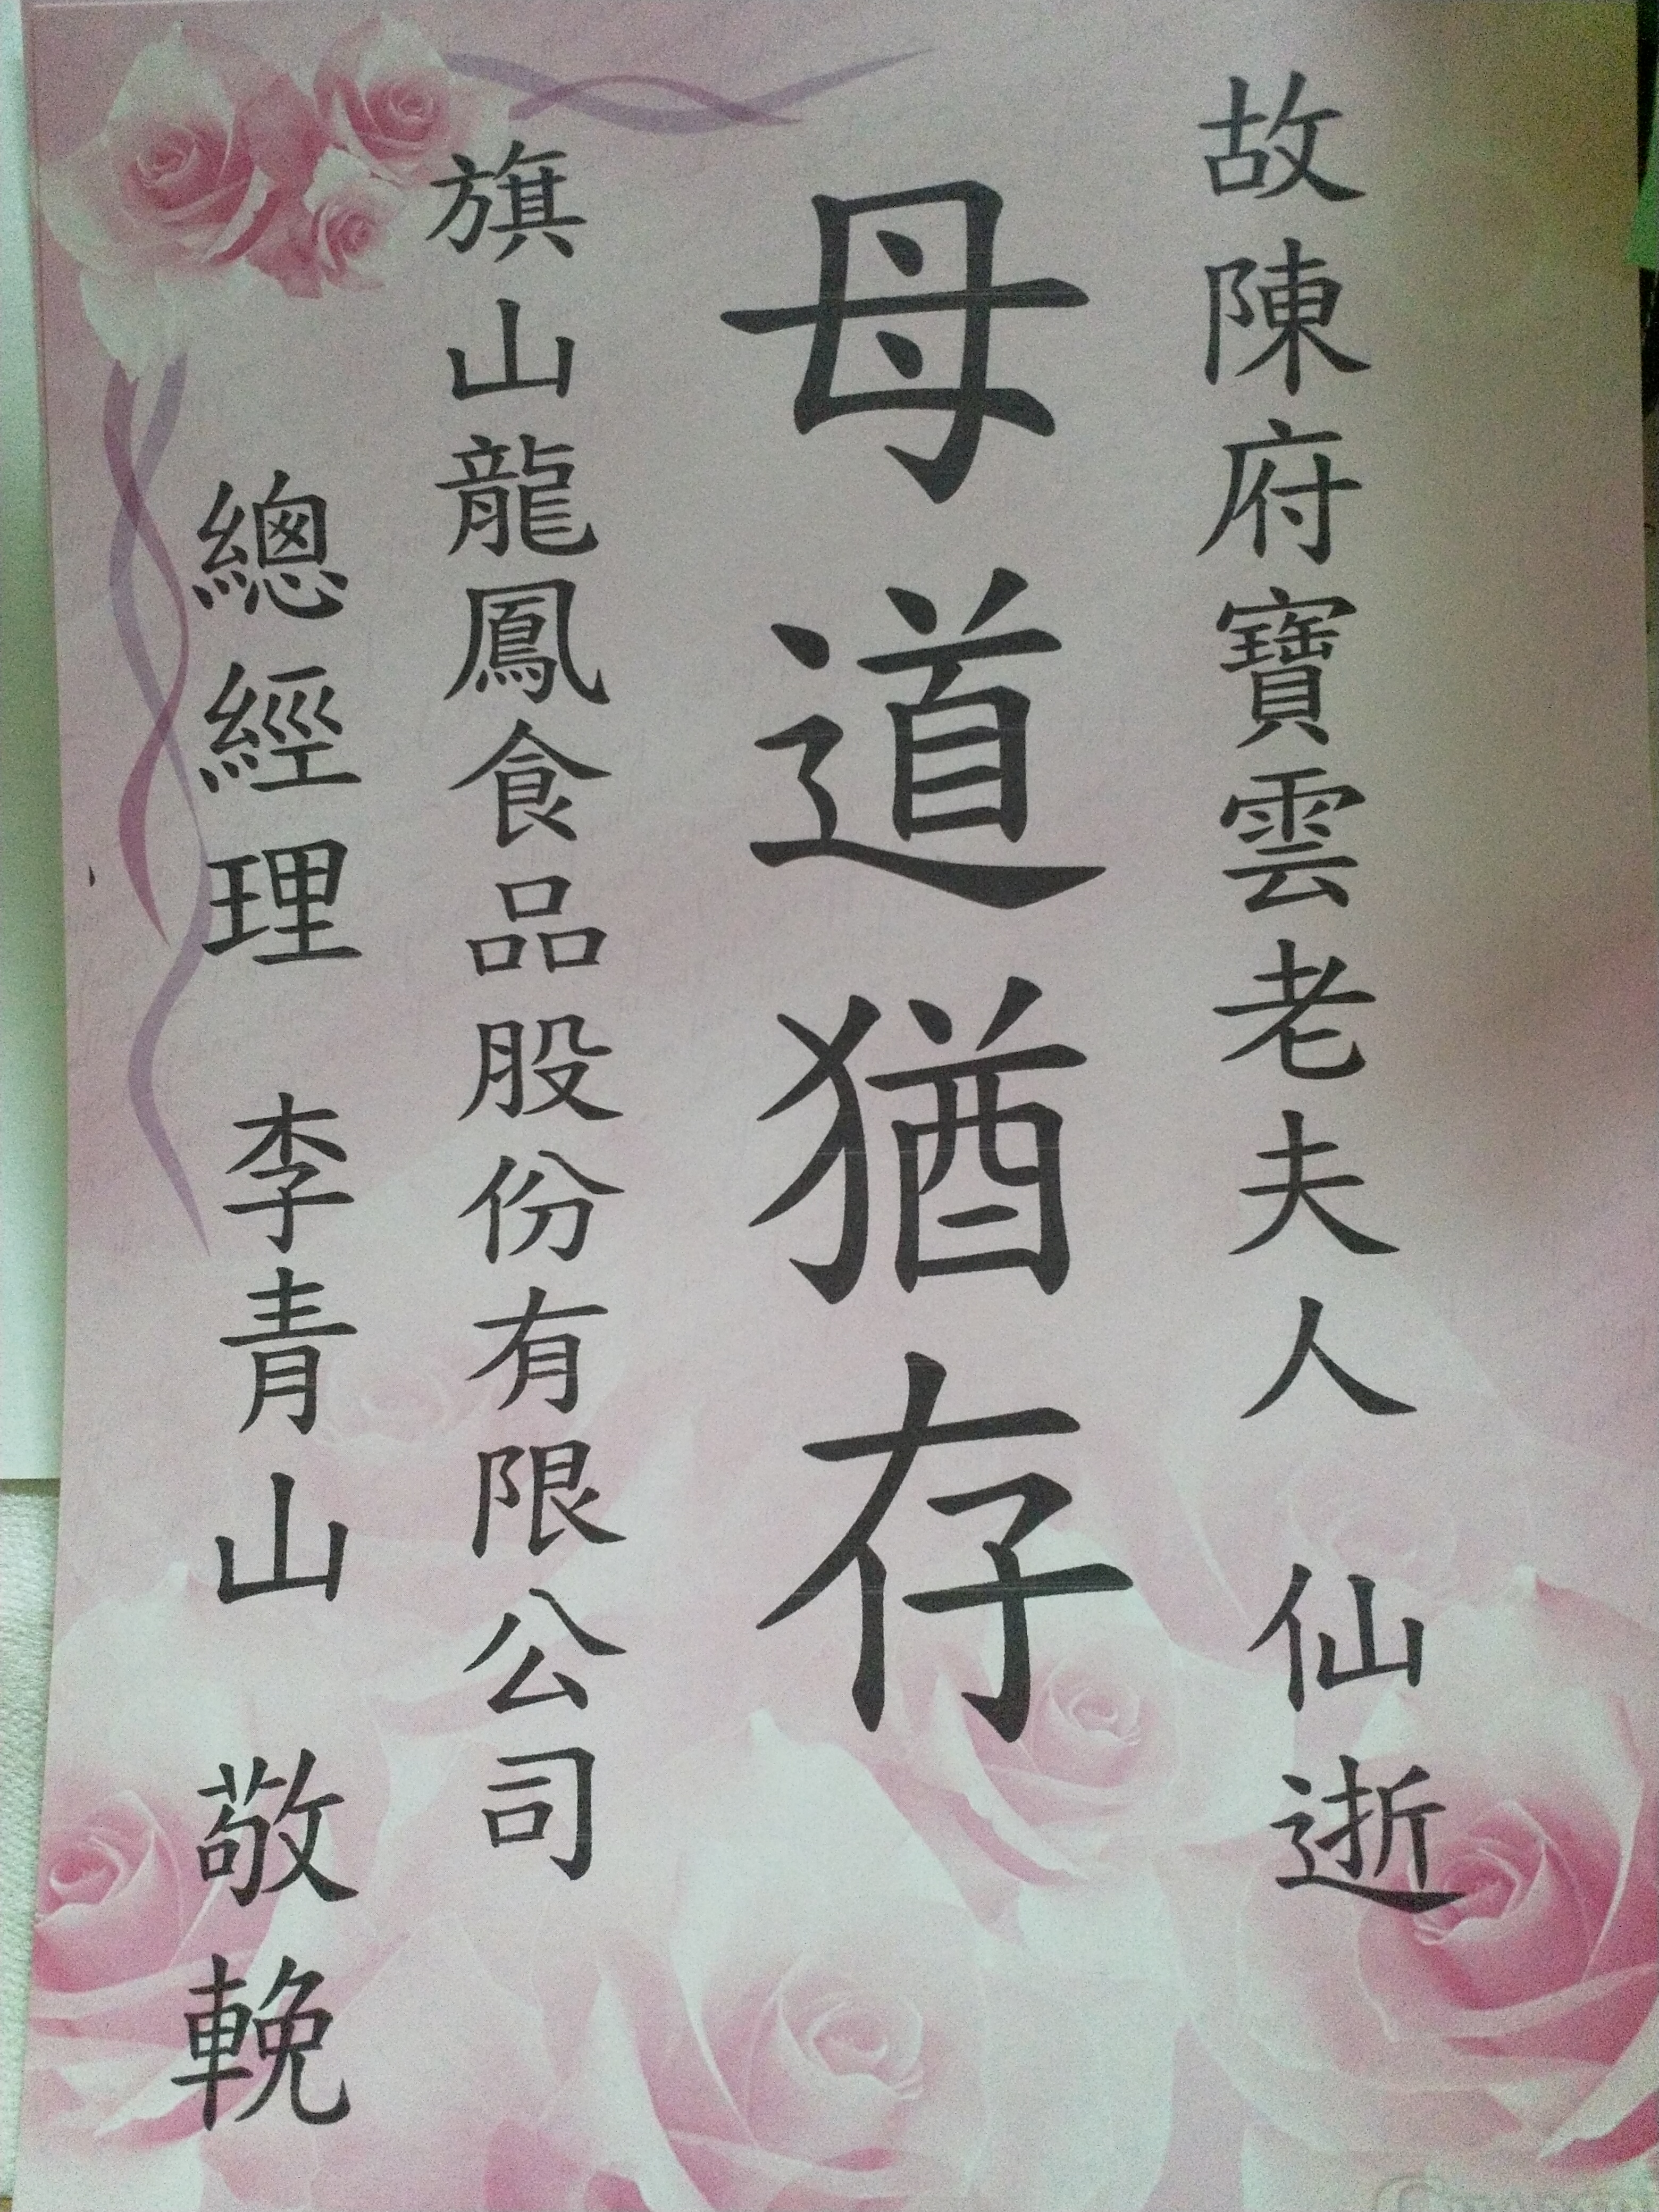 故陳府寶雲老夫人 仙逝
母道猶存
旗山龍鳳食品股份有限公司
總經理 李青山 敬輓